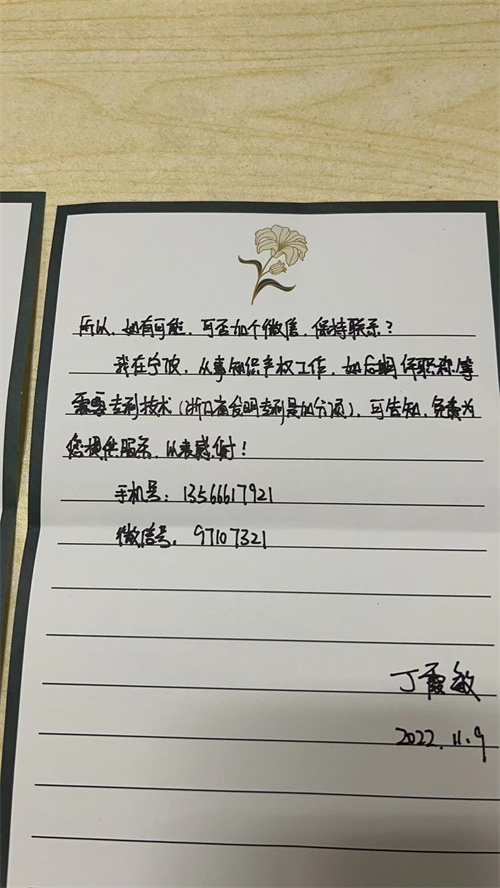 所以，如有可能，可否加个微信，保持联系？
我在宁波，从事知识产权工作，如后期评职称等
需要专利技术（浙江省发明专利是加分项），可告知，免费为
您提供服务，以表感谢！
手机号：13566617921
微信号：97107321
丁霞敏
2022.11.9